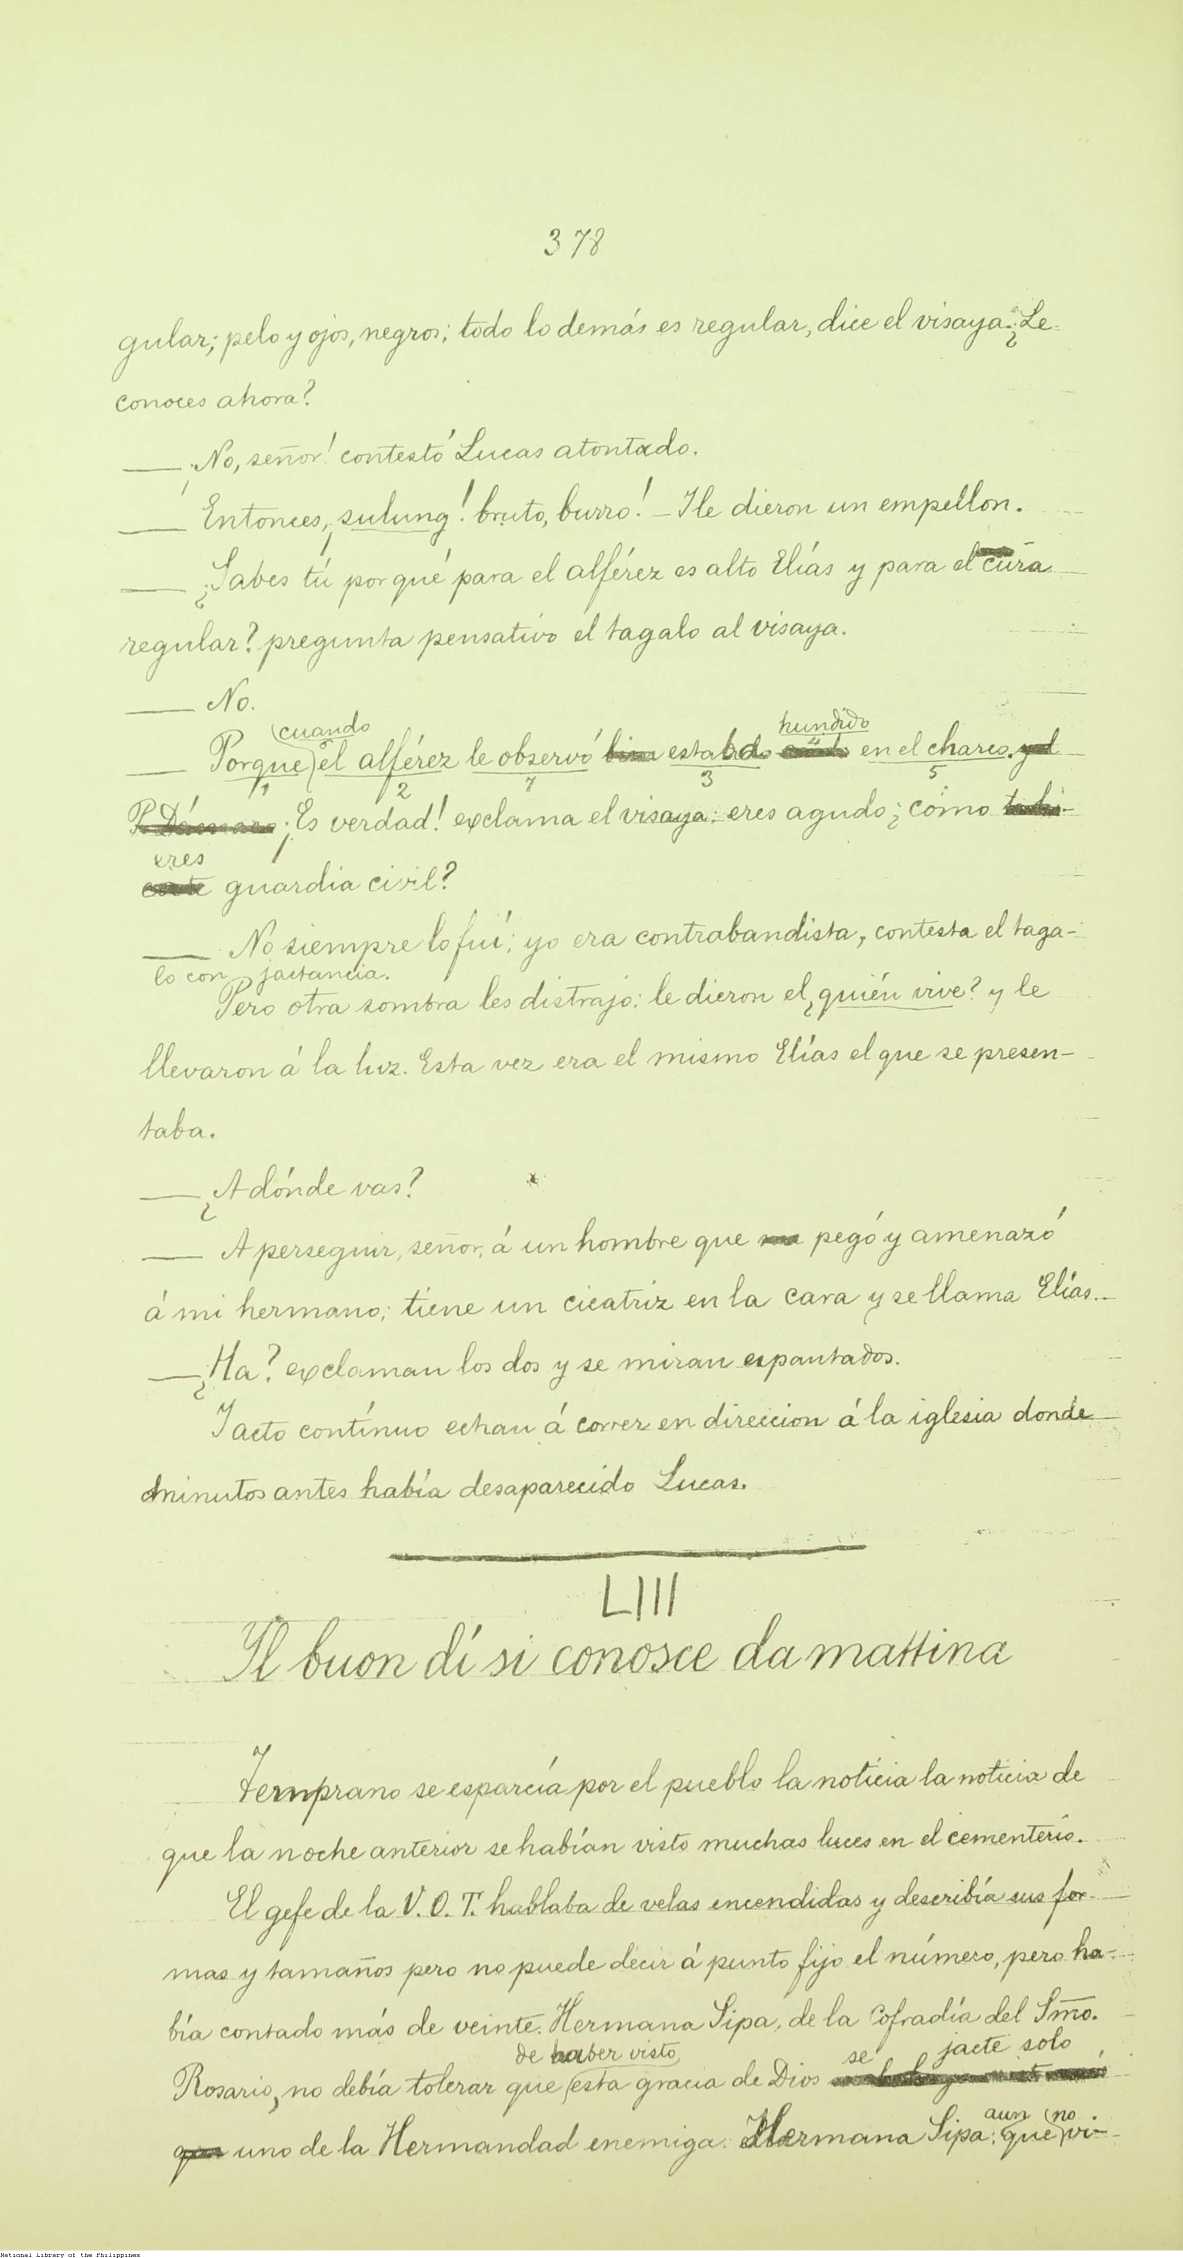 378
gular; pelo y ojos, negros; todo lo demás es regular, dice el visaya. ¿Le
conoces ahora?
— ¡No, señor! contestó Lucas atontado.
— Entonces, ¡sulung! bruto, burro! — Y le dieron un empellon.
— ¿Sabes tú porqué para el alférez es alto Elías y para el cura
regular? pregunta pensativo el tagalo al visaya.
— No.
cuando hundido
— Porque el alférez le observó estaba en el charco. y el
1 2 7 3 4 5
P. Dámaso ¡Es verdad! exclama el visaya: eres agudo; ¿cómo
eres
guardia civil?
— No siempre lo fuí; yo era contrabandista, contesta el taga-
lo con jactancia.
Pero otra sombra les distrajo: le dieron el ¿quién vive? y le
llevaron á la luz. Esta vez era el mismo Elías el que se presen-
taba.
— ¿A dónde vas?
— A perseguir, señor, á un hombre que pegó y amenazó
á mi hermano; tiene un cicatriz en la cara y se llama Elías..
— ¿Ha? exclaman los dos y se miran espantados.
Y acto contínuo echan á correr en direccion á la iglesia donde
minutos antes había desaparecido Lucas.
LIII
Il buon dí si conosce da mattina
Temprano se esparcía por el pueblo la noticia la noticia de
que la noche anterior se habían visto muchas luces en el cementerio.
El gefe de la V. O. T. hablaba de velas encendidas y describía sus for-
mas y tamaños pero no puede decir á punto fijo el número, pero ha-
bía contado más de veinte. Hermana Sipa, de la Cofradía del Smo.
de haber visto se jacte solo
Rosario, no debía tolerar que esta gracia de Dios
que uno de la Hermandad enemiga. Hermana Sipa, que vi-
aun no